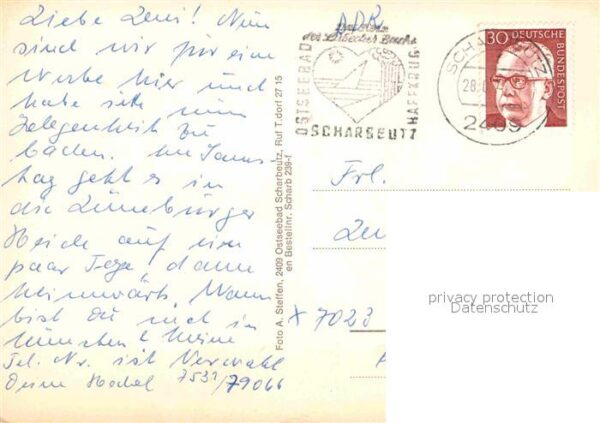 Liebe Leni! Nun
sind wir für eine
Woche hier und
habe sehr
Gelegenheit zu
baden. Am Sams-
tag geht es in
die Lüneburger
Heide auf ein
paar Tage, dann
heimwärts. Wann
bist du mal in
München? Meine
Tel. Nr. ist Vorwahl
Deine 7531/79066
Foto A. Steffen, 2409 Ostseebad Scharbeutz, Ruf T.dorf 27 15
en Bestellnr. Scharb 239-f
DDR
der Lübecker Bucht
OSTSEEBAD
HAFFKRUG
SCHARBEUTZ
SCHARBEUTZ
28.
2409
30 DEUTSCHE
BUNDESPOST
Frl.
X 7023
privacy protection
Datenschutz